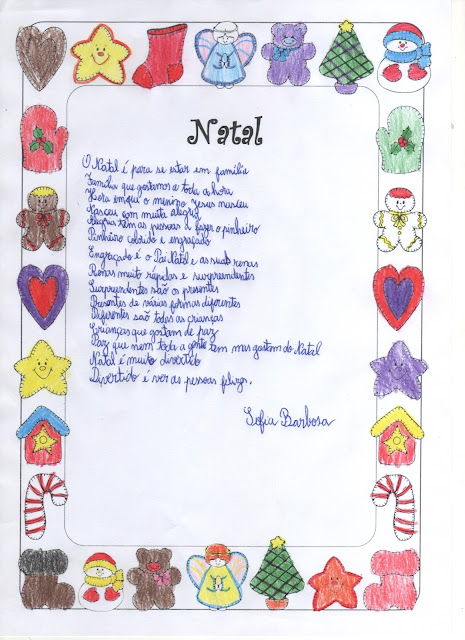 Natal
O Natal é para se estar em família
Família que gostamos a toda a hora
Hora em que o menino Jesus nasceu
Nasceu com muita alegria
Alegria têm as pessoas a fazer o pinheiro
Pinheiro colorido e engraçado
Engraçado é o Pai Natal e as suas renas
Renas muito rápidas e surpreendentes
Surpreendentes são os presentes
Presentes de várias formas diferentes
Diferentes são todas as crianças
Crianças que gostam de paz
Paz que nem toda a gente tem mas gostam do Natal
Natal é muito divertido
Divertido é ver as pessoas felizes.
Sofia Barbosa